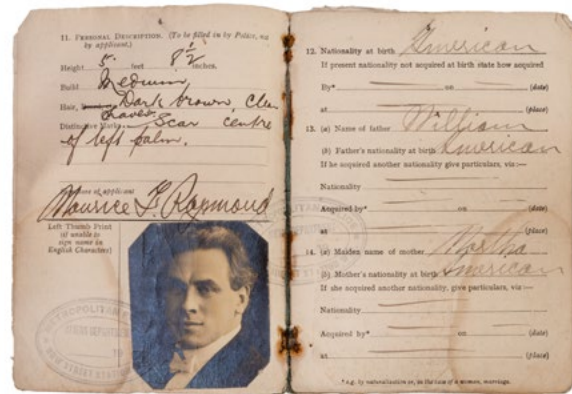 6.
11. PERSONAL DESCRIPTION. (To be filled in by Police, not
by applicant.)
Height 5 feet 8 1/2 inches.
Build Medium
Hair, Dark brown, clean
shaven
Distinctive Marks Scar centre
of left palm.
of applicant
Maurice F. Raymond
Left Thumb Print
(if unable to
sign name in
English Characters)
METROPOLITAN
12. Nationality at birth American
If present nationality not acquired at birth state how acquired
By* on (date)
at (place)
13. (a) Name of father William
(b) Father's nationality at birth American
If he acquired another nationality give particulars, viz:—
Nationality
Acquired by* on (date)
at (place)
14. (a) Maiden name of mother Martha
(b) Mother's nationality at birth American
If she acquired another nationality, give particulars, viz:—
Nationality
Acquired by* on (date)
at (place)
*e.g. by naturalization or, in the case of a woman, marriage.